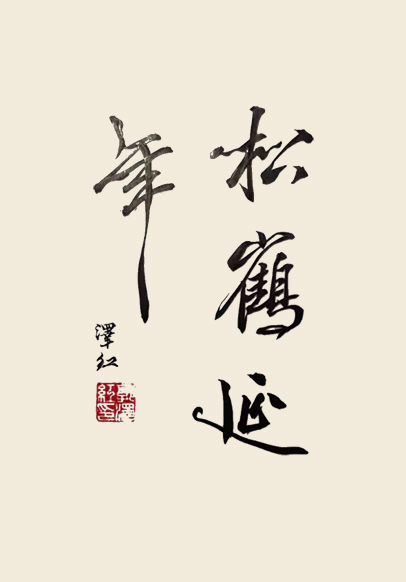 松鶴延
年
澤红